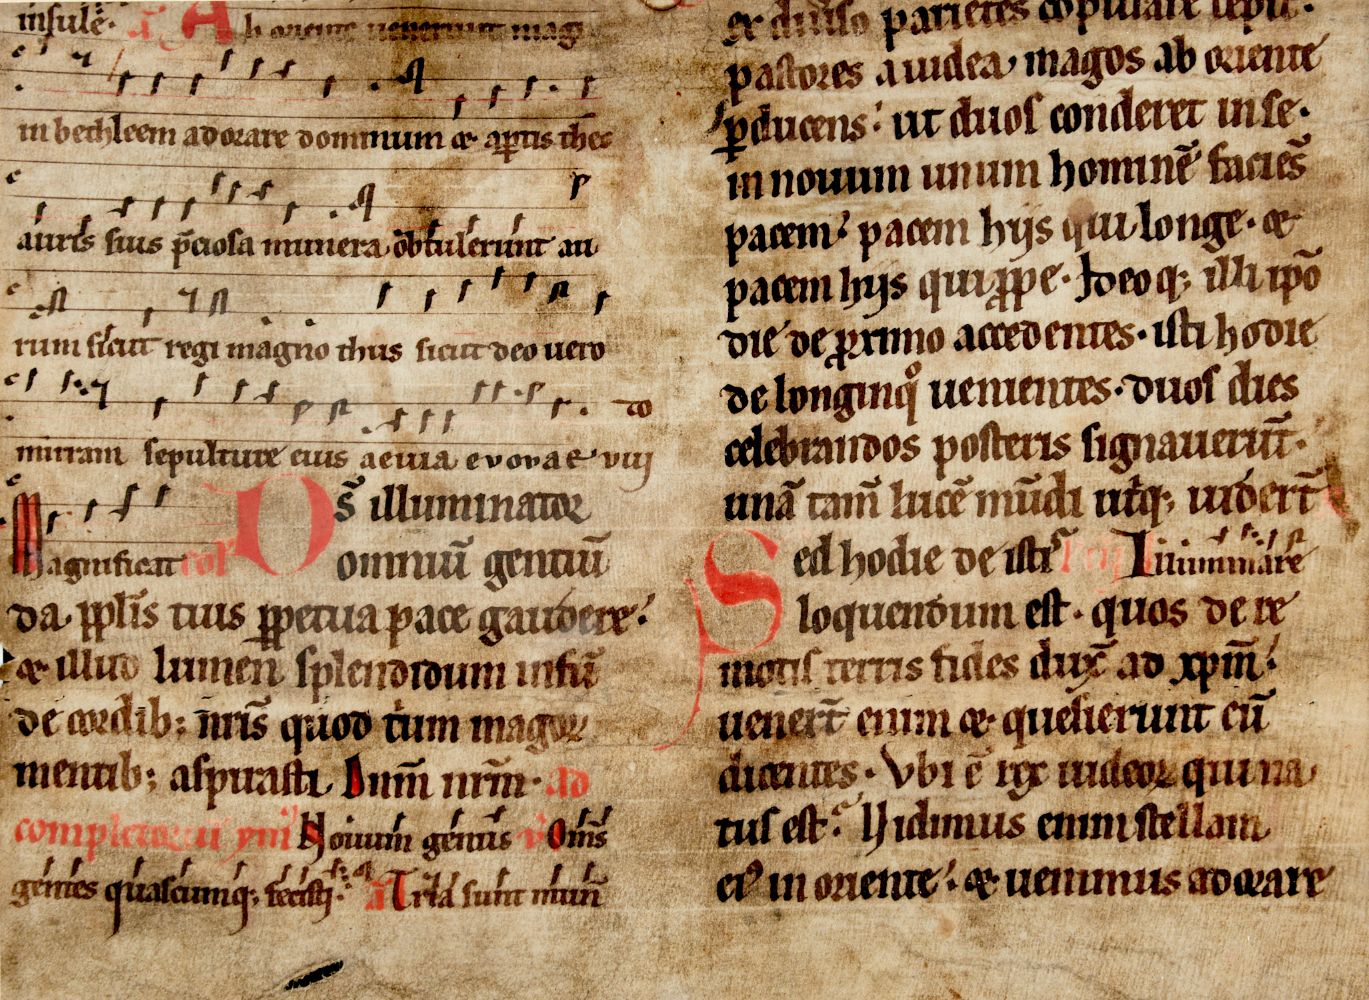 insule. A Ab oriente uenerunt magi
in bethleem adorare dominum et aptis thes
auris suis p̄ciosa munera obtulerunt au
rum sicut regi magno thus sicut deo uero
mirram sepulture eius aeuia evovae viij
Magnificat col' Ds̄ illuminator
omniū gentiū
da pplis tuis ppetua pace gaudere:
et illud lumen splendidum infū
de cordib; nr̄is quod trium magor
mentib; aspirasti Dnm̄ nrm̄. ad
completorium ymn Noiuum genus v Om̄s
gentes quascumq; fecisti. a Tria sunt mun̄
ex diuiso parietes copulare
pastores a iudea magos ab oriente
pducens: ut duos conderet in se.
in nouum unum hominē faciēs
pacem: pacem hijs qui longe. et
pacem hijs qui ppe. Ideoq; illi ipō
die de pximo accedentes. isti hodie
de longinqo uenientes. duos dies
celebrandos posteris signauerūt.
unā tam̄ lucē mūdi utq; uiderūt
Sed hodie de isti Illuminare
loquendum est. quos de re
motis terris fides dux̄ ad xpm̄:
uenert̄ enim et quesierunt eū
dicentes. Vbi ē rex iudeor qui na
tus est? Vidimus enim stellam
ei' in oriente: et uenimus adorare